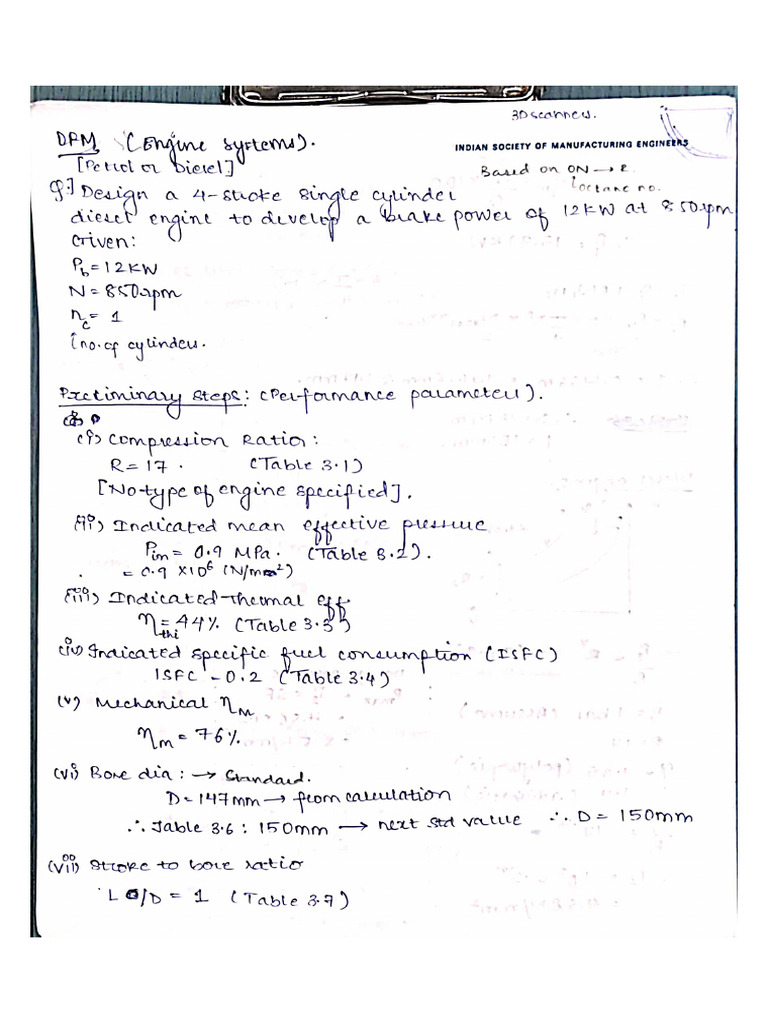 3D scanners.
DPM (Engine systems).
INDIAN SOCIETY OF MANUFACTURING ENGINEERS
[Petrol or Diesel]
Based on ON → R
octane no.
Q.] Design a 4-stroke single cylinder
diesel engine to develop a brake power of 12KW at 850rpm
Given:
Pb = 12KW
N = 850rpm
nc = 1
no. of cylinders.
Preliminary steps: (Performance parameters).
(i) Compression Ratio:
R = 17. (Table 3.1)
[No type of engine specified].
(ii) Indicated mean effective pressure
Pim = 0.9 MPa. (Table 3.2).
= 0.9 × 10⁶ (N/mm²)
(iii) Indicated Thermal eff
η thi = 44% (Table 3.3)
(iv) Indicated specific fuel consumption (ISFC)
ISFC - 0.2 (Table 3.4)
(v) Mechanical ηM
ηm = 76%
(vi) Bore dia: → Standard.
D = 147mm → from calculation
∴ Table 3.6: 150mm → next std value ∴ D = 150mm
(vii) Stroke to bore ratio
L/D = 1 (Table 3.7)